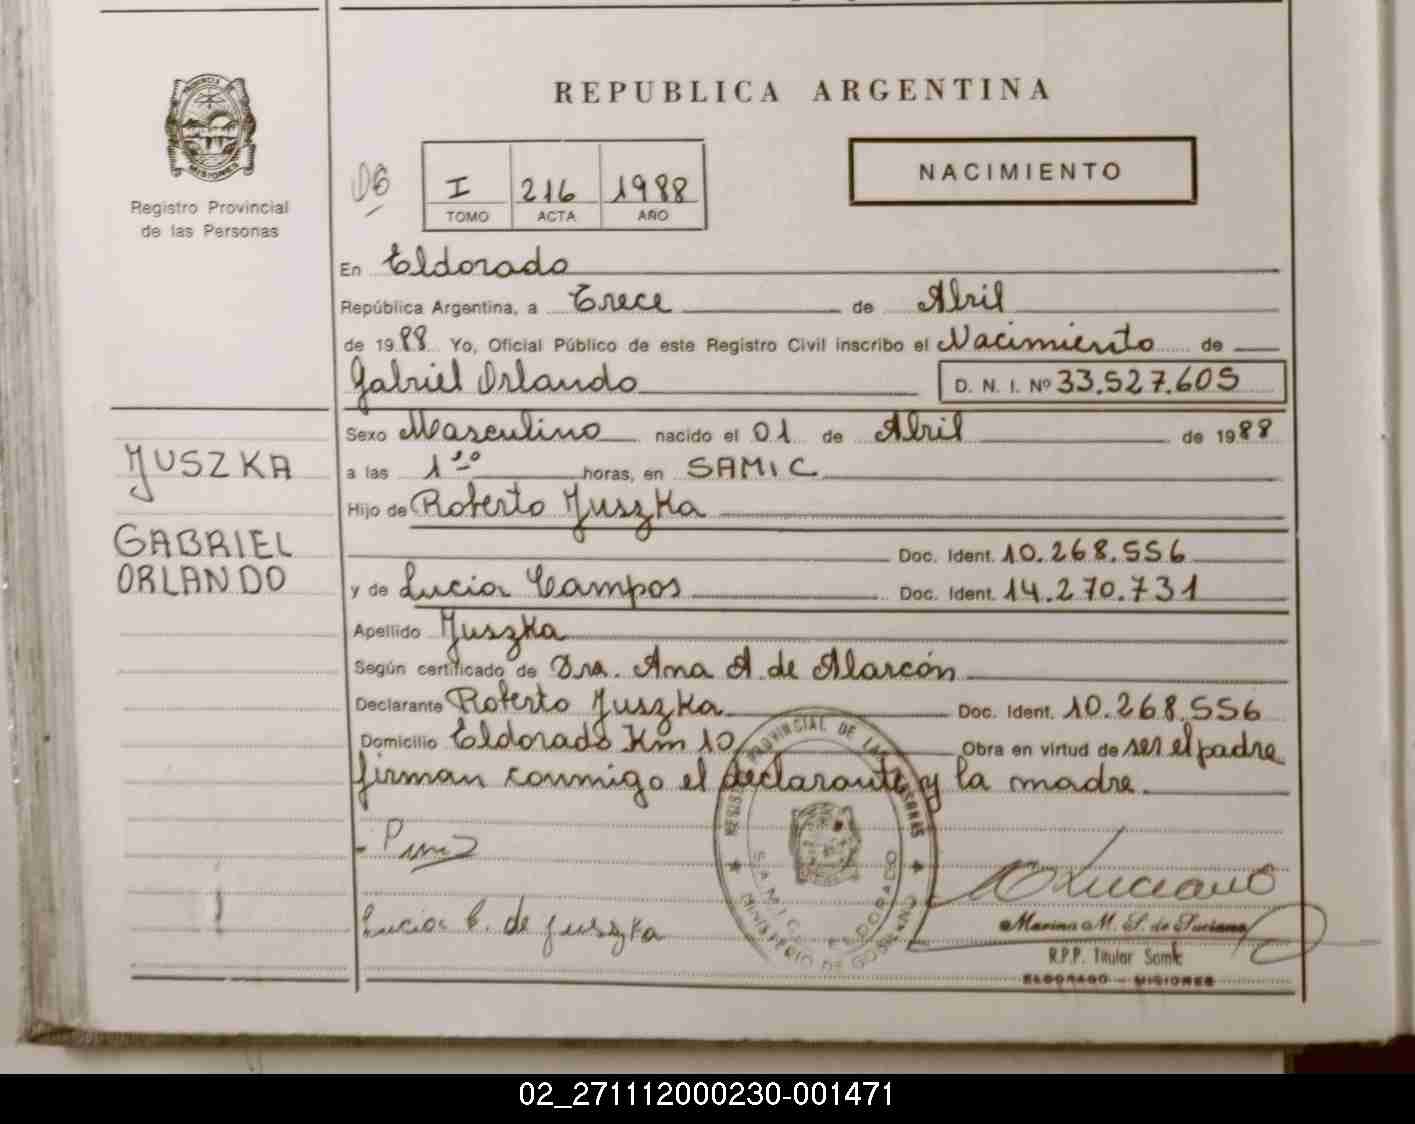 REPUBLICA ARGENTINA
PROVINCIA
MISIONES
Registro Provincial
de las Personas
06
I 216 1988
TOMO ACTA AÑO
NACIMIENTO
En Eldorado
República Argentina, a Trece de Abril
de 1988 Yo, Oficial Público de este Registro Civil inscribo el Nacimiento de
Gabriel Orlando D. N. I. Nº 33.527.605
Sexo Masculino nacido el 01 de Abril de 1988
a las 1 horas, en SAMIC
Hijo de Roberto Juszka
Doc. Ident. 10.268.556
y de Lucia Campos Doc. Ident. 14.270.731
Apellido Juszka
Según certificado de Dra. Ana A. de Alarcón
Declarante Roberto Juszka Doc. Ident. 10.268.556
Domicilio Eldorado Km 10 Obra en virtud de ser el padre
firman conmigo el declarante y la madre.
JUSZKA
GABRIEL
ORLANDO
Lucia C. de Juszka
REGISTRO PROVINCIAL DE LAS PERSONAS
SAMIC ELDORADO
MINISTERIO DE GOBIERNO
Marina M. S. de Luciano
R.P.P. Titular Samic
ELDORADO - MISIONES
02_271112000230-001471